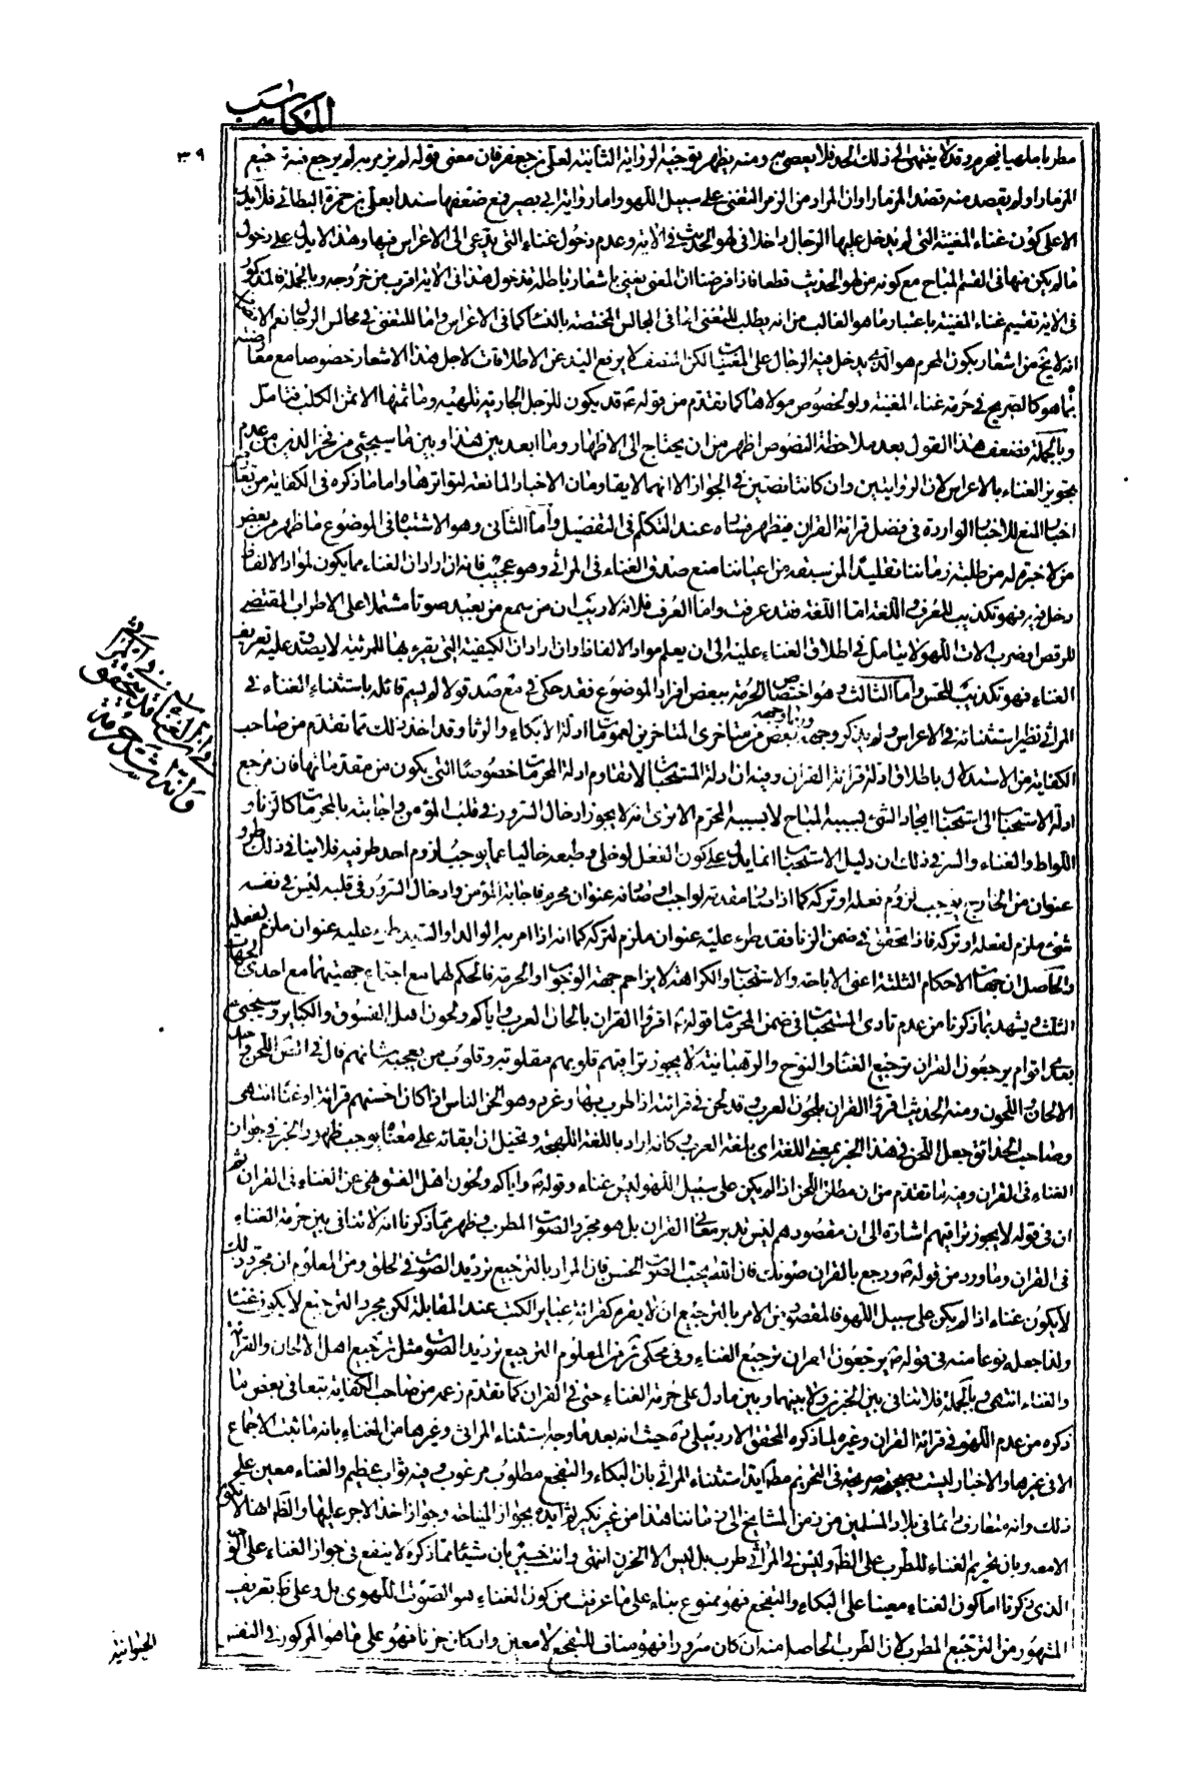 المكاسب
٣٩
مطربا ملهيا فيحرم وقد لا ينتهى الى ذلك الحد فلا يعصى به ومنه يظهر توجيه الرواية الثانية لعلى بن جعفر فان معنى قوله لم يزمر به لم يرجع فيه ترجيع
المزمار او لم يقصد منه قصد المزمار او ان المراد من الزمر التغنى على سبيل اللهو واما رواية ابى بصير فمع ضعفها سندا بعلى بن حمزة البطائنى فلا تدل
الا على كون غناء المغنية التى لم يدخل عليها الرجال داخلا فى لهو الحديث فى الاية وعدم دخول غناء التى تدعى الى الاعراس فيها وهذا لا يدل على دخول
ما لم يكن منها فى القسم المباح مع كونه من لهو الحديث قطعا فاذا فرضنا ان المغنى يغنى باشعار باطلة فدخول هذا فى الاية اقرب من خروجه وبالجملة فالمذكور
فى الاية تقسيم غناء المغنية باعتبار ما هو الغالب من انه يطلب للتغنى اما فى المجالس المختصة بالنساء كما فى الاعراس واما للتغنى فى مجالس الرجال نعم الانصاف
انه لا يخ من اشعار بكون المحرم هو الذى يدخل فيه الرجال على المغنيات لكن المنصف لا يرفع اليد عن الاطلاقات لاجل هذا الاشعار خصوصا مع معارضته
بما هو كالصريح فى حرمة غناء المغنية ولو لخصوص مولاها كما تقدم من قوله ع قد يكون للرجل الجارية تلهيه وما ثمنها الا ثمن الكلب فتامل
وبالجملة فضعف هذا القول بعد ملاحظة النصوص اظهر من ان يحتاج الى الاظهار وما ابعد بين هذا وبين ما سيجئ من فخر الدين من عدم
تجويز الغناء بالاعراس لان الروايتين وان كانتا نصين فى الجواز الا انهما لا يقاومان الاخبار المانعة لتواترها واما ما ذكره فى الكفاية من تعارض
اخبار المنع للاخبار الواردة فى فضل قرائة القران فيظهر فساده عند التكلم فى التفصيل واما الثانى وهو الاشتباه فى الموضوع فما ظهر من بعض
من لا خبرة له من طلبة زماننا تقليدا لمن سبقه من اعياننا منع صدق الغناء فى المراثى وهو عجيب فانه ان اراد ان الغناء مما يكون لمواد الالفاظ
دخل فيه فهو تكذيب للعرف واللغة اما اللغة فقد عرفت واما العرف فلانه لا ريب ان من سمع من بعيد صوتا مشتملا على الاطراب المقتضى
للرقص او ضرب الات اللهو لا يتامل فى اطلاق الغناء عليه الى ان يعلم مواد الالفاظ وان اراد ان الكيفية التى يقرء بها للمرثية لا يصدق عليه تعريف
الغناء فهو تكذيب للحس واما الثالث وهو اختصاص الحرمة ببعض افراد الموضوع فقد حكى فى مع صد قولا لم يسم قائله باستثناء الغناء فى
المراثى نظير استثنائه فى الاعراس ولم يذكر وجهه وربما وجهه بعض من متاخرى المتاخرين لعمومات ادلة الابكاء والرثاء وقد اخذ ذلك مما تقدم من صاحب
الكفاية من الاستدلال باطلاق ادلة قرائة القران وفيه ان ادلة المستحبات لا تقاوم ادلة المحرمات خصوصا التى يكون من مقدماتها فان مرجع
ادلة الاستحباب الى استحباب ايجاد الشئ بسببه المباح لا بسببه المحرم الا ترى انه لا يجوز ادخال السرور فى قلب المؤمن واجابته بالمحرمات كالزنا و
اللواط والغناء والسر فى ذلك ان دليل الاستحباب انما يدل على كون الفعل لو خلى وطبعه خاليا عما يوجب لزوم احد طرفيه فلا ينافى ذلك طرو
عنوان من الخارج يوجب لزوم فعله او تركه كما اذا صار مقدمة لواجب او صادفه عنوان محرم فاجابة المؤمن وادخال السرور فى قلبه ليس فى نفسه
شئ ملزم لفعله او تركه فاذا تحقق فى ضمن الزنا فقد طرء عليه عنوان ملزم لتركه كما انه اذا امر به الوالد او السيد طرء عليه عنوان ملزم لفعله
والحاصل ان جهات الاحكام الثلثة اعنى الاباحة والاستحباب والكراهة لا يزاحم جهة الوجوب او الحرمة فالحكم لهما مع اجتماع جهتيهما مع احدى الجهات
الثلث ويشهد بما ذكرنا من عدم تادى المستحبات فى ضمن المحرمات قوله ص اقرؤا القران بالحان العرب واياكم ولحون اهل الفسوق والكبائر وسيجئ
بعدى اقوام يرجعون القران ترجيع الغناء والنوح والرهبانية لا يجوز تراقيهم قلوبهم مقلوبة وقلوب من يعجبه شانهم قال فى الصحاح اللحن واحد
الالحان واللحون ومنه الحديث اقرؤا القران بلحون العرب وقد لحن فى قرائته اذا طرب بها وغرد وهو الحن الناس اذا كان احسنهم قرائة او غناء انتهى
وصاحب الحدائق جعل اللحن فى هذا الخبر بمعنى اللغة اى بلغة العرب وكانه اراد باللغة اللهجة وتخيل ان ابقائه على معناه يوجب ظهور الخبر فى جواز
الغناء فى القران وفيه ما تقدم من ان مطلق اللحن اذا لم يكن على سبيل اللهو ليس غناء وقوله ص واياكم ولحون اهل الفسق نهى عن الغناء فى القران ثم
ان فى قوله لا يجوز تراقيهم اشارة الى ان مقصودهم ليس تدبر معانى القران بل هو مجرد الصوت المطرب وظهر مما ذكرنا انه لا تنافى بين حرمة الغناء
فى القران وما ورد من قوله ص ورجع بالقران صوتك فان الله يحب الصوت الحسن فان المراد بالترجيع ترديد الصوت فى الحلق ومن المعلوم ان مجرد ذلك
لا يكون غناء اذا لم يكن على سبيل اللهو فالمقصود من الامر بالترجيع ان لا يقرء كقرائة عبائر الكتب عند المقابلة لكن مجرد الترجيع لا يكون غناء
ولذا جعله نوعا منه فى قوله ص يرجعون القران ترجيع الغناء وفى محكى شمس العلوم الترجيع ترديد الصوت مثل ترجيع اهل الالحان والقرائة
والغناء انتهى وبالجملة فلا تنافى بين الخبرين ولا بينهما وبين ما دل على حرمة الغناء حتى فى القران كما تقدم زعمه من صاحب الكفاية تبعا فى بعض ما
ذكره من عدم اللهو فى قرائة القران وغيره لما ذكره المحقق الاردبيلى ره حيث انه بعد ما وجه استثناء المراثى وغيرها من الغناء بانه ما ثبت الاجماع
الا فى غيرها والاخبار ليست بصحيحة صريحة فى التحريم مطلقا ايد استثناء المراثى بان البكاء والتفجع مطلوب مرغوب وفيه ثواب عظيم والغناء معين على
ذلك وانه متعارف دائما فى بلاد المسلمين من زمن المشايخ الى زماننا هذا من غير نكير ثم ايده بجواز النياحة وجواز اخذ الاجر عليها والظ انها لا تكون
الا معه وبان تحريم الغناء للطرب على الظ وليس فى المراثى طرب بل ليس الا الحزن انتهى وانت خبير بان شيئا مما ذكره لا ينفع فى جواز الغناء على الوجه
الذى ذكرنا اما كون الغناء معينا على البكاء والتفجع فهو ممنوع بناء على ما عرفت من كون الغناء هو الصوت اللهوى بل وعلى ظ تعريف
المشهور من الترجيع المطرب لان الطرب الحاصل منه ان كان سرورا فهو مناف للتفجع لا معين وان كان حزنا فهو على ما هو المركوز فى النفس
الحيوانية